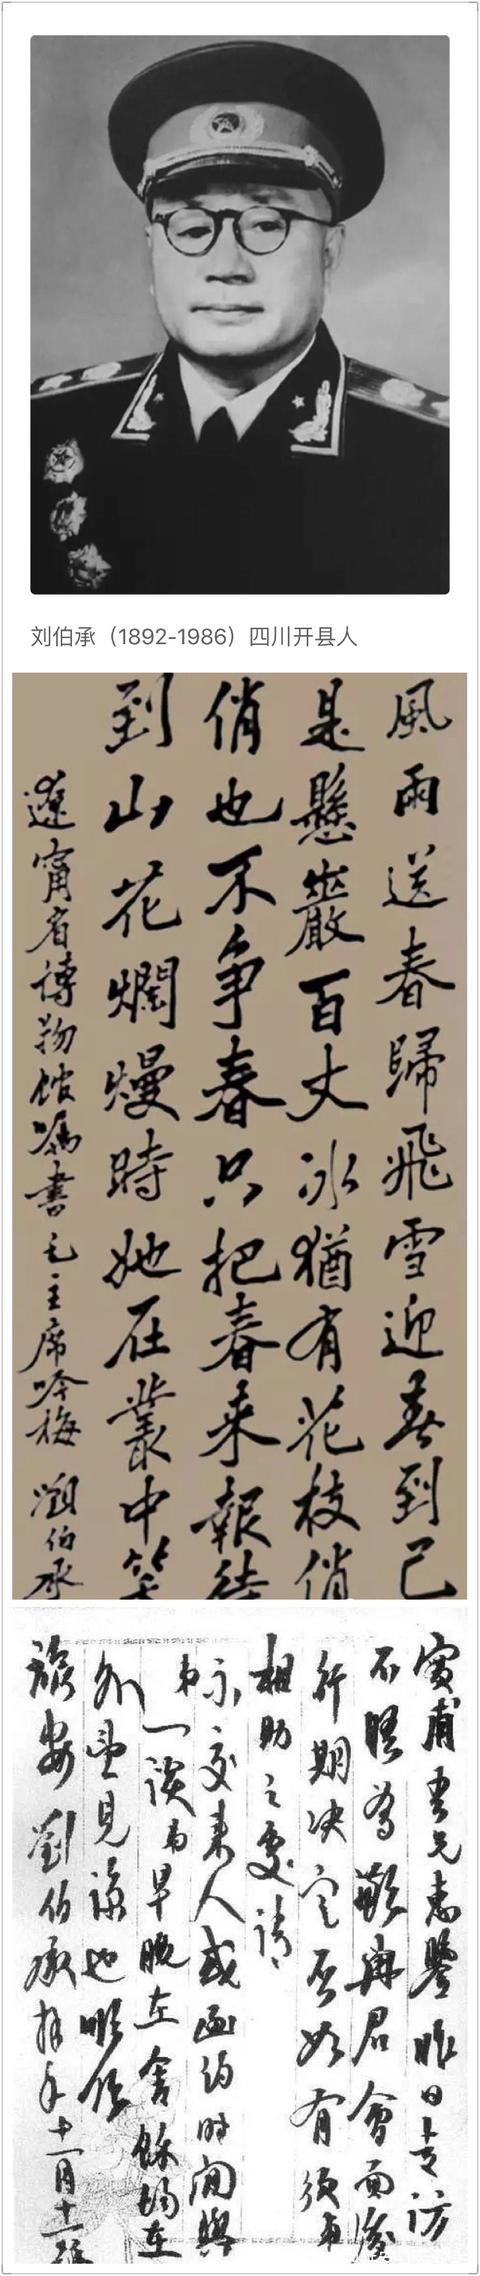 刘伯承（1892-1986）四川开县人
風雨送春歸飛雪迎春到已
是懸巖百丈冰猶有花枝俏
俏也不争春只把春来報待
到山花爛熳時她在叢中笑
遼甯省博物館属書毛主席咏梅 劉伯承
寅甫吾兄惠鑒昨日走访
不晤为歉與君會面後
行期决定否如有须弟
相助之處請
示交来人或函约时间與
弟一谈弟早晚在舍餘均在
外望見諒也順頌
旅安 劉伯承拜手十一月十一